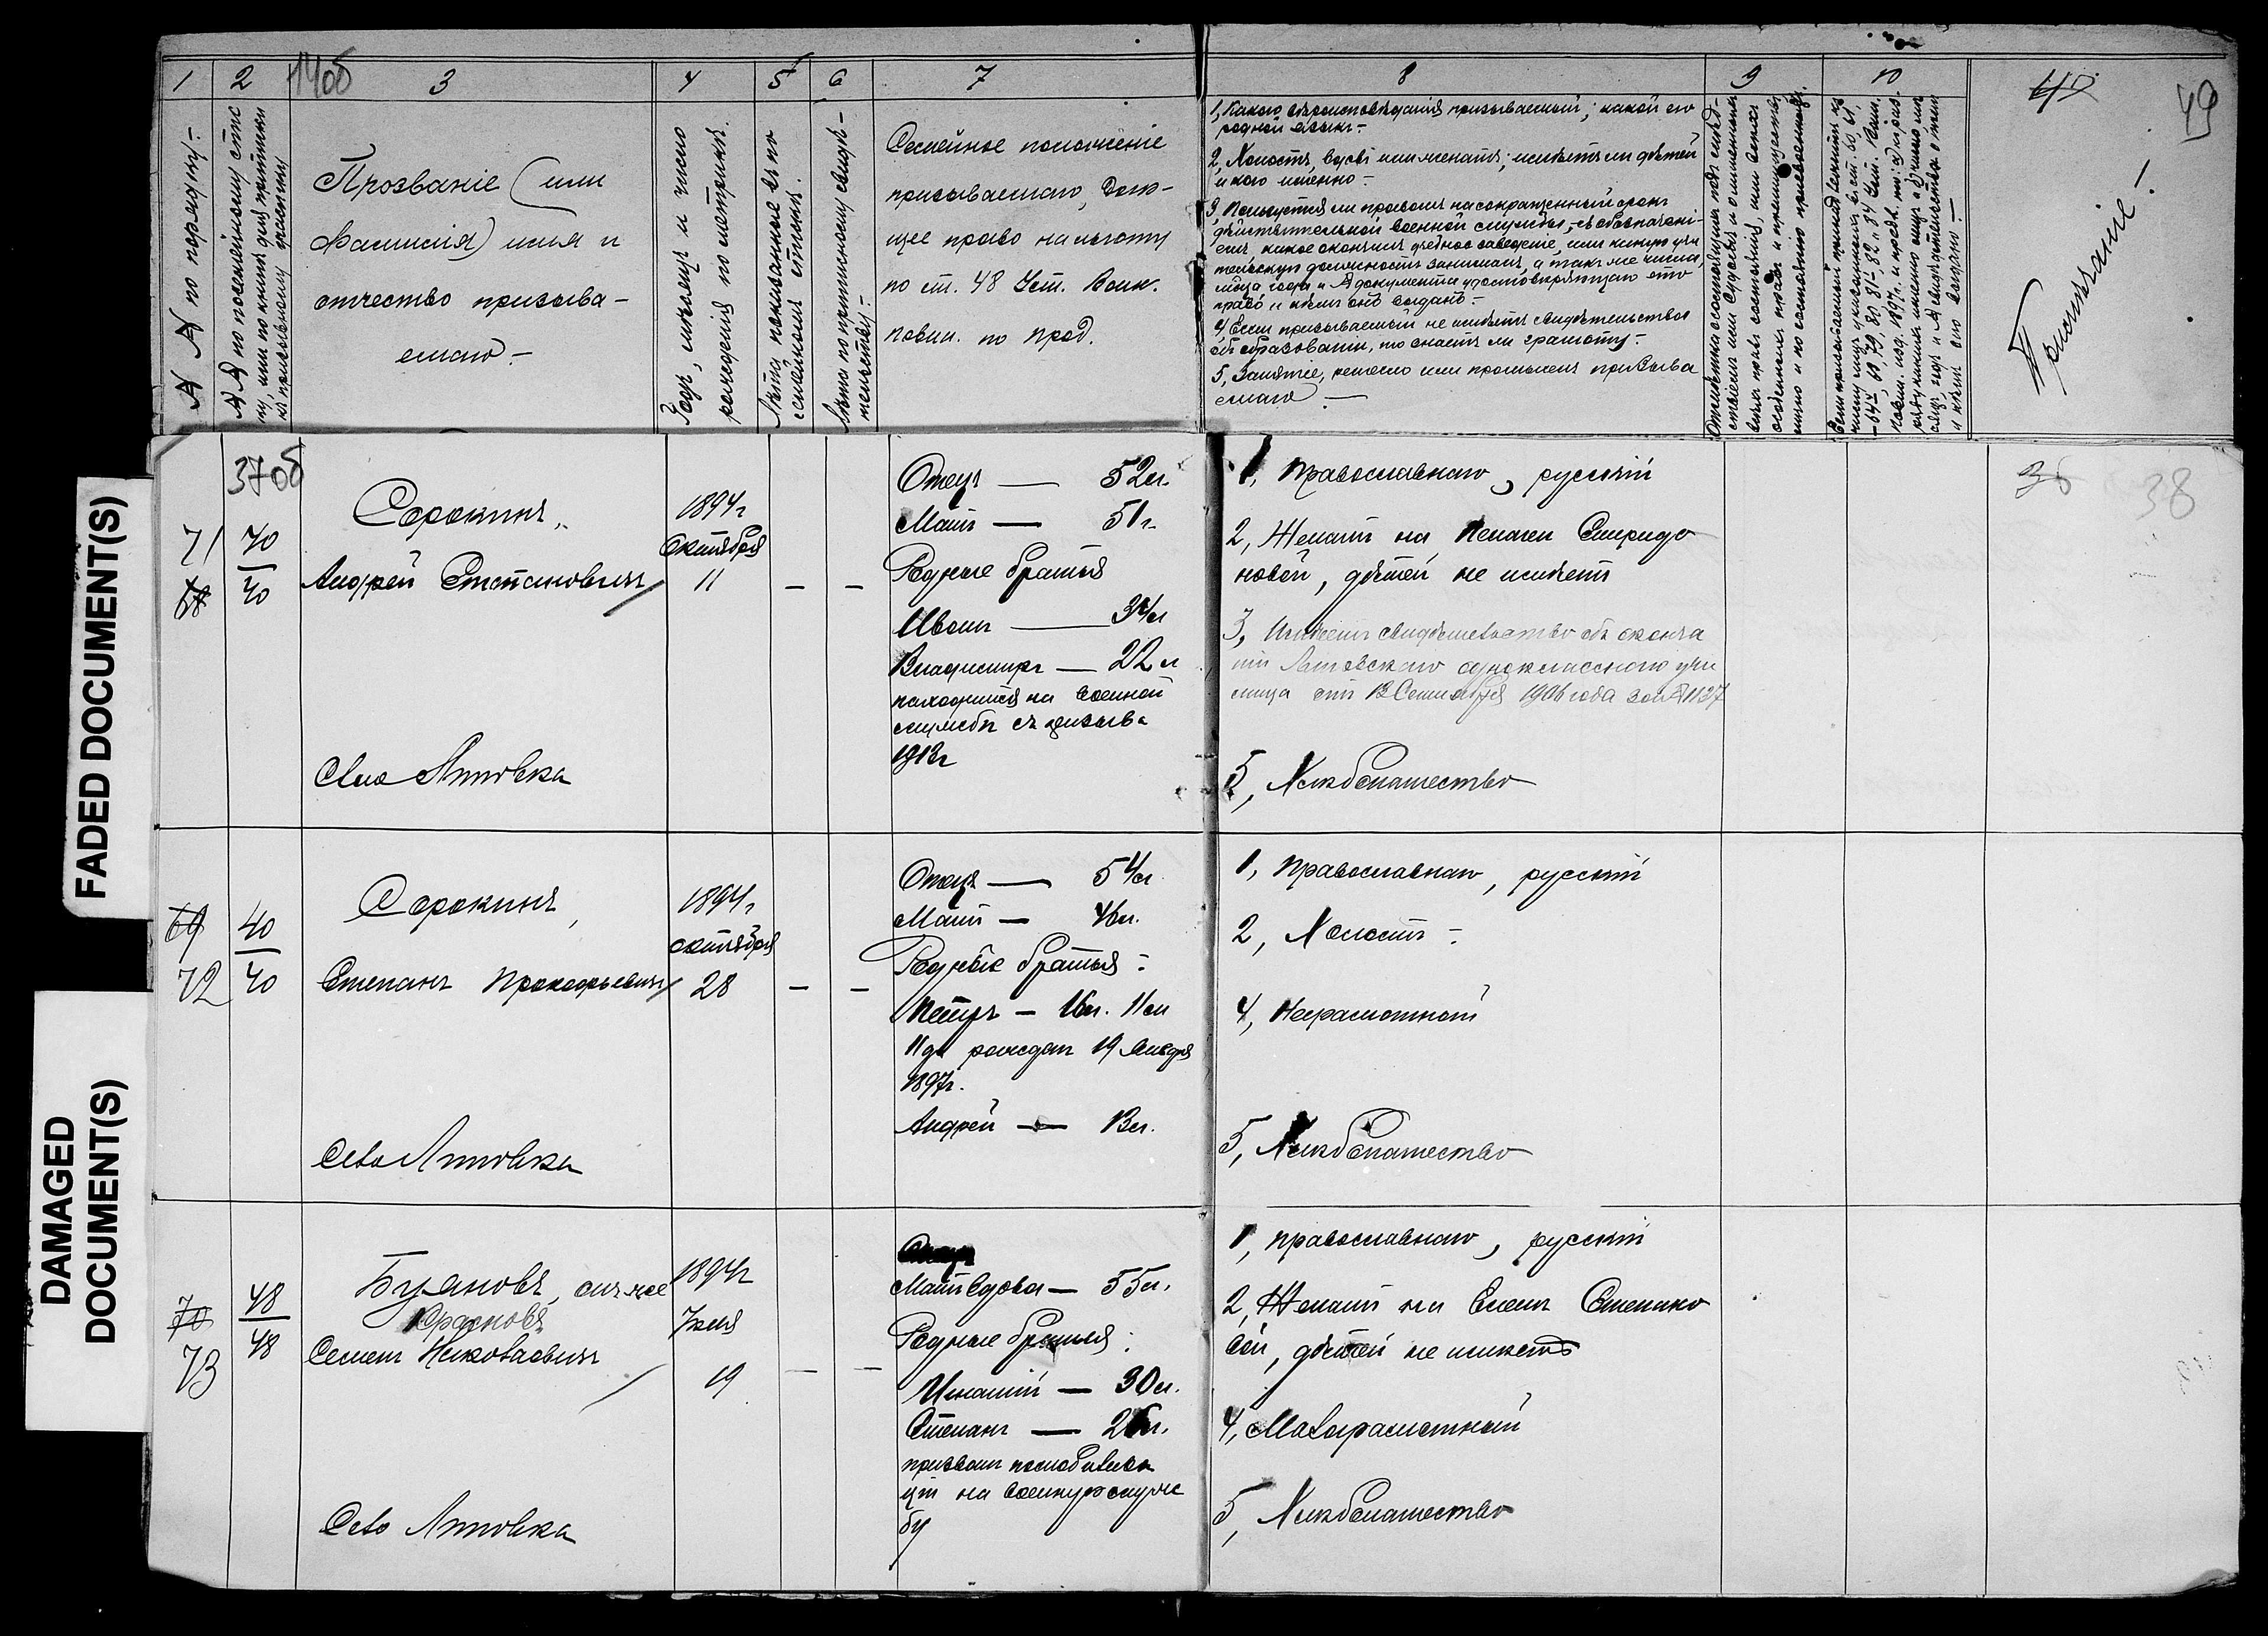 1
2
14об
3
4
5
6
7
8
9
10
49
№ № по порядку.-
№№ по посемейному спис
ку, или по книгѣ для приписки
къ призывному участку
Прозваніе (или
Фамилія) имя и
отчество призыва-
емаго -
Годъ, мѣсяцъ и число
рожденія по метрикѣ.
Лѣта показанное въ по
семейномъ спискѣ.
Лѣта по приписному свидѣ-
тельству.-
Семейное положеніе
призываемаго, даю-
щее право на льготу
по ст. 48 Уст. Воин.
повин. по прод.
1, Какого вѣроисповѣданія призываемый; какой его
родной языкъ.-
2, Холостъ, вдовъ или женатъ; имѣетъ ли дѣтей
и кого именно -
3, Пользуется ли правомъ на сокращенный срокъ
дѣйствительной военной службы, съ обозначені-
емъ, какое окончилъ учебное заведеніе, или какую учи
тельскую должность занимаетъ, а также числа,
мѣсяца года и № документа удостовѣряющаго это
право и кѣмъ онъ выданъ -
4, Если призываемый не имѣетъ свидѣтельства
объ образованіи, то знаетъ ли грамоту.-
5, Занятіе, ремесло или промыселъ призыва
емаго -
Примѣчаніе -
37об
38
71
68
40
40
Сорокинъ,
Андрей Степановичъ
Село Лятовка
1894г
Октября
11
-
-
Отецъ — 52л.
Мать — 51г.
Родные братья
Иванъ — 34л
Владимиръ — 22 л
находится на военной
службѣ съ призыва
1912г
1, Православнаго, русскій
2, Женатъ на Пелагеи Спиридо
новой, дѣтей не имѣетъ
3, Имѣетъ свидѣтельство объ оконча
ніи Лятовскаго однокласснаго учи
лища отъ 12 Сентября 1906 года за № 1137
5, Хлѣбопашество
69
72
40
40
Сорокинъ,
Степанъ Прокофьевичъ
Село Лятовка
1894г
октября
28
-
-
Отецъ — 54л
Мать — 46л.
Родные братья:
Петръ — 16л. 11м
11дн рожден 19 Января
1897г.
Андрей — 13л.
1, Православнаго, русскій
2, Холостъ -
4, Неграмотный
5, Хлѣбопашество
70
73
48
48
Буяновъ, онъ же
Семенъ Николаевичъ
Село Лятовка
1894г
Іюля
19
-
-
Мать вдова — 55л.
Родные братья:
Игнатій — 30л.
Степанъ — 26л.
призванъ по мобилиза
ціи на военную служ
бу
1, православнаго, русскій
2, Женатъ на Еленѣ Степано
вой, дѣтей не имѣетъ
4, Малограмотный
5, Хлѣбопашество
FADED DOCUMENT(S)
DAMAGED
DOCUMENT(S)